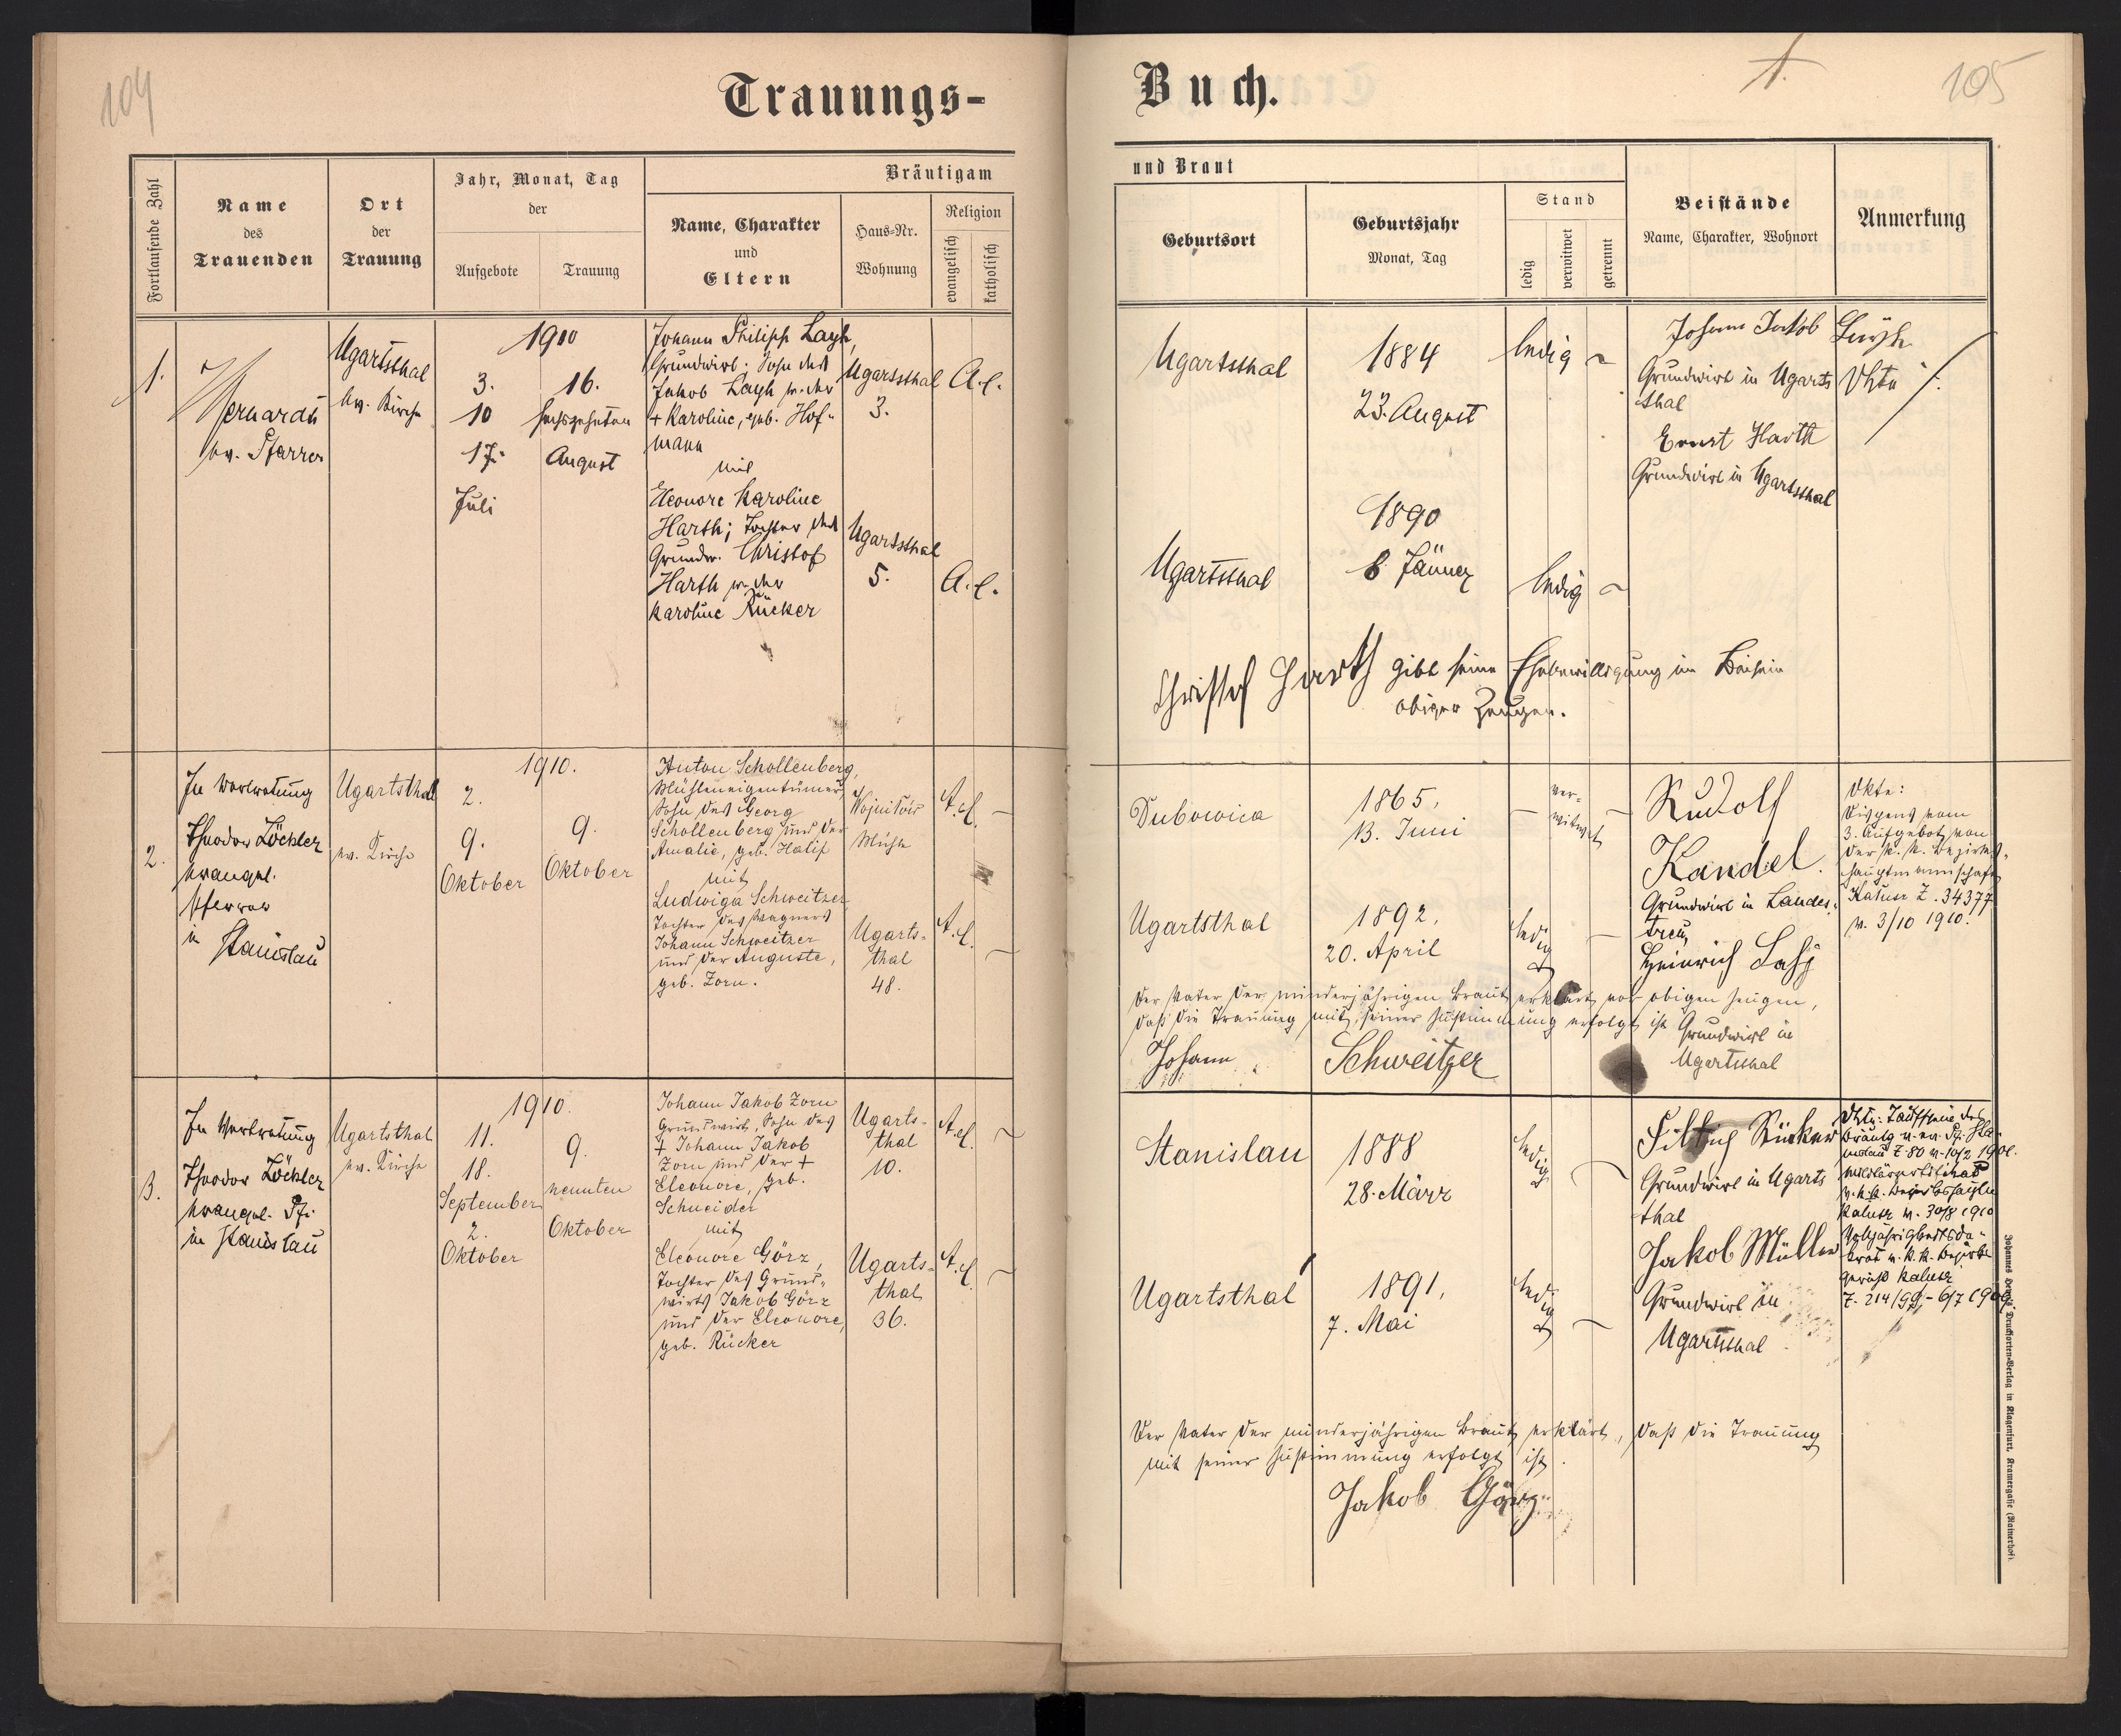 104
Trauungs-
Fortlaufende Zahl
Name
des
Trauenden
Ort
der
Trauung
Jahr, Monat, Tag
der
Aufgebote
Trauung
Bräutigam
Name, Charakter
und
Eltern
Haus-Nr.
Wohnung
Religion
evangelisch
katholisch
1.
ev. Pfarrer
Ugartsthal
ev. Kirche
1910
3.
10
17.
Juli
16.
sechszehnten
August
Johann Philipp Layh,
Grundwirt. Sohn des
Jakob Layh u. der
+ Karoline, geb. Hof-
mann
mit
Eleonore Karoline
Harth; Tochter des
Grundw. Christof
Harth u. der
Karoline Rücker
Ugartsthal
3.
Ugartsthal
5.
A.C.
A.C.
2.
In Vertretung
Theodor Zöckler
evangel.
Pfarrer
in
Stanislau
Ugartsthal
ev. Kirche
1910.
2.
9.
Oktober
9.
Oktober
Anton Schollenberg,
Mühleneigentümer,
Sohn des Georg
Schollenberg und der
Amalie, geb. Halif
mit
Ludwiga Schweitzer,
Tochter des Wagners
Johann Schweitzer
und der Auguste,
geb. Zorn.
Wojnilów
Mühle
Ugarts-
thal
48.
A.C.
A.C.
3.
In Vertretung
Theodor Zöckler
evangel. Pfr.
in Stanislau
Ugartsthal
ev. Kirche
1910.
11.
18.
September
2.
Oktober
9.
neunten
Oktober
Johann Jakob Zorn
Grundwirt, Sohn des
+ Johann Jakob
Zorn und der +
Eleonore, geb.
Schneider
mit
Eleonore Görz,
Tochter des Grund-
wirts Jakob Görz
und der Eleonore,
geb. Rücker
Ugarts-
thal
10.
Ugarts-
thal
36.
A.C.
A.C.
1.
105
Buch.
und Braut
Geburtsort
Geburtsjahr
Monat, Tag
Stand
ledig
verwitwet
getrennt
Beistände
Name, Charakter, Wohnort
Anmerkung
Ugartsthal
1884
23. August
ledig
Johann Jakob Layh
Grundwirt in Ugarts
thal
Ernst Harth
Grundwirt in Ugartsthal
Ugartsthal
1890
6 Jänner
ledig
Christof Harth gibt seine Ehebewilligung im Beisein
obiger Zeugen.
Dubowica
1865,
13. Juni
ver-
witwet
Rudolf
Kandel
Grundwirt in Landes-
treu,
Dkte:
Dispens vom
3. Aufgebot von
der k. k. Bezirks-
hauptmannschaft
Kalusz Z. 34377
v. 3/10 1910.
Ugartsthal
1892,
20. April
ledig
Heinrich Lahj
Der Vater der minderjährigen Braut erklärt vor obigen Zeugen,
daß die Trauung mit seiner Zustimmung erfolgt ist
Grundwirt in
Ugartsthal
Johann Schweitzer
Stanislau
1888
28. März
ledig
Rücker
Grundwirt in Ugarts
thal
Jakob Müller
Grundwirt in
Ugartsthal
Ugartsthal
1891,
7. Mai
ledig
Kalusz v. 30/8 1910
Volljährigkeitsde-
kret v. k. k. Bezirks
gericht Kalusz
Der Vater der minderjährigen Braut erklärt, daß die Trauung
mit seiner Zustimmung erfolgt ist.
Jakob Görz